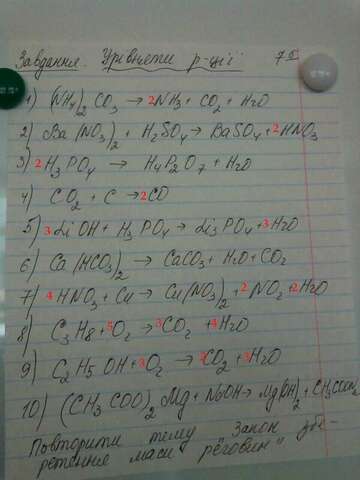 Завдання. Урівняти р-ції 7Б
1) (NH4)2 CO3 → 2NH3 + CO2 + H2O
2) Ba(NO3)2 + H2SO4 → BaSO4 + 2HNO3
3) 2H3PO4 → H4P2O7 + H2O
4) CO2 + C → 2CO
5) 3LiOH + H3PO4 → Li3PO4 + 3H2O
6) Ca(HCO3)2 → CaCO3 + H2O + CO2
7) 4HNO3 + Cu → Cu(NO3)2 + 2NO2 + 2H2O
8) C3H8 + 5O2 → 3CO2 + 4H2O
9) C2H5OH + 3O2 → 2CO2 + 3H2O
10) (CH3COO)2Mg + NaOH → Mg(OH)2 +
Повторити тему "Закон збе-
реження маси речовин"